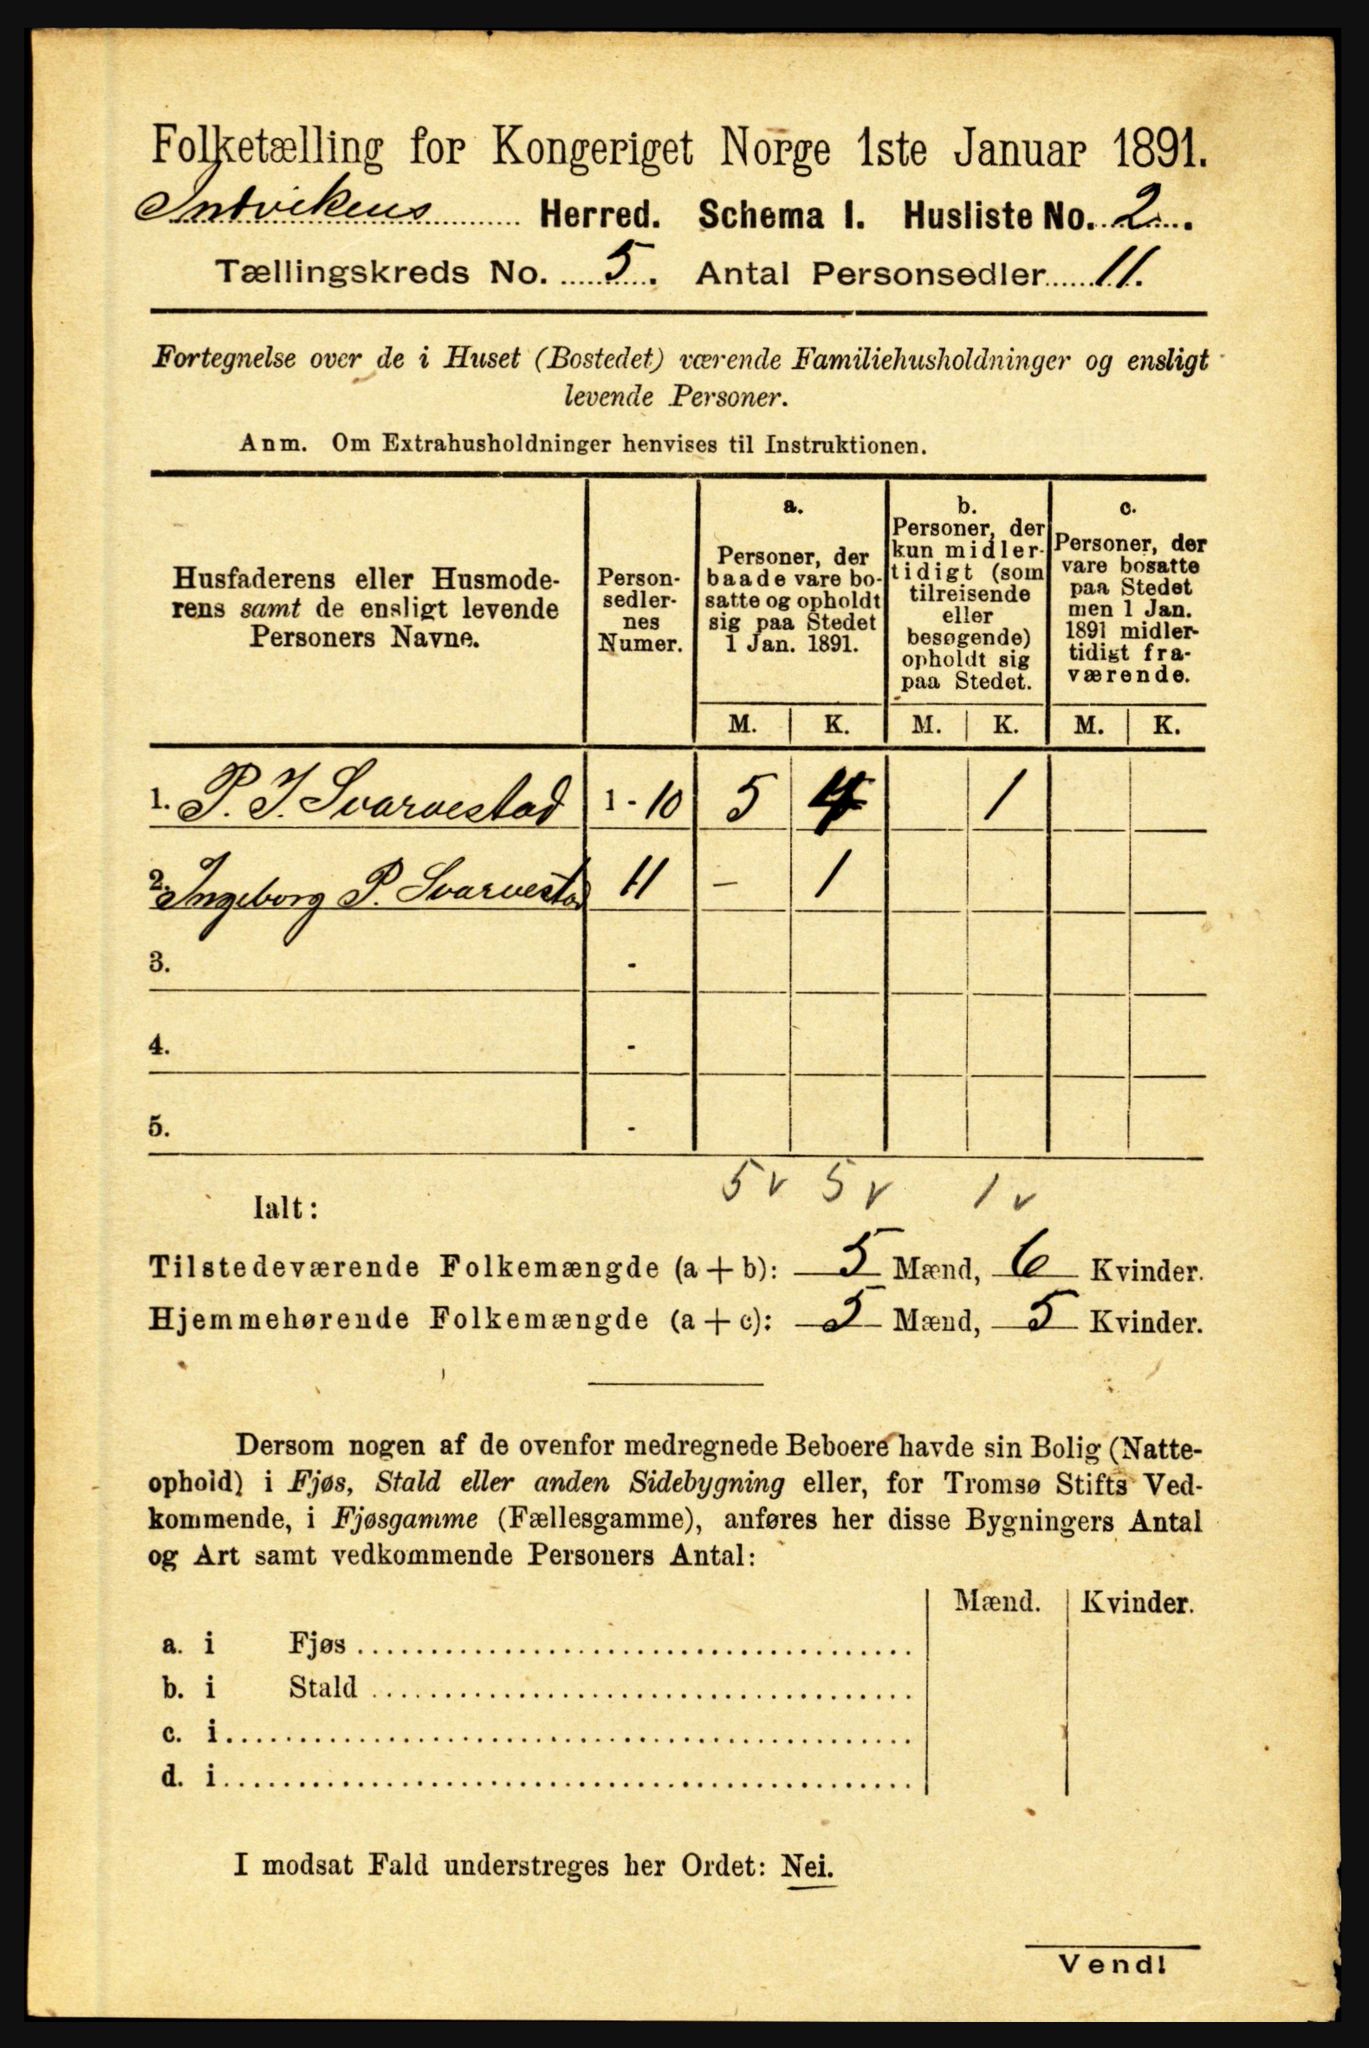 Folketælling for Kongeriget Norge 1ste Januar 1891.
Indvikens Herred. Schema I. Husliste No. 2.
Tællingskreds No. 5. Antal Personsedler 11.
Fortegnelse over de i Huset (Bostedet) værende Familiehusholdninger og ensligt
levende Personer.
Anm. Om Extrahusholdninger henvises til Instruktionen.
Husfaderens eller Husmode-
rens samt de ensligt levende
Personers Navne.
Person-
sedler-
nes
Numer.
a.
Personer, der
baade vare bo-
satte og opholdt
sig paa Stedet
1 Jan. 1891.
b.
Personer, der
kun midler-
tidigt (som
tilreisende
eller
besøgende)
opholdt sig
paa Stedet.
c.
Personer, der
vare bosatte
paa Stedet
men 1 Jan.
1891 midler-
tidigt fra-
værende.
M. K. M. K. M. K.
1. P. J. Svarvestad 1 - 10 5 4 1
2. Ingeborg P. Svarvestad 11 - 1
3. -
4. -
5. -
5 v 5 v 1 v
Ialt:
Tilstedeværende Folkemængde (a + b): 5 Mænd, 6 Kvinder.
Hjemmehørende Folkemængde (a + c): 5 Mænd, 5 Kvinder.
Dersom nogen af de ovenfor medregnede Beboere havde sin Bolig (Natte-
ophold) i Fjøs, Stald eller anden Sidebygning eller, for Tromsø Stifts Ved-
kommende, i Fjøsgamme (Fællesgamme), anføres her disse Bygningers Antal
og Art samt vedkommende Personers Antal:
Mænd. Kvinder.
a. i Fjøs
b. i Stald
c. i
d. i
I modsat Fald understreges her Ordet: Nei.
Vend!